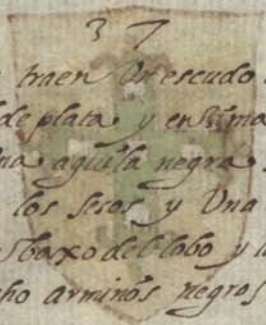 37
traen Un escudo
de plata y ensima
Una aguila negra
los sesos y Una
sbaxo del lobo y
cho arminos negros